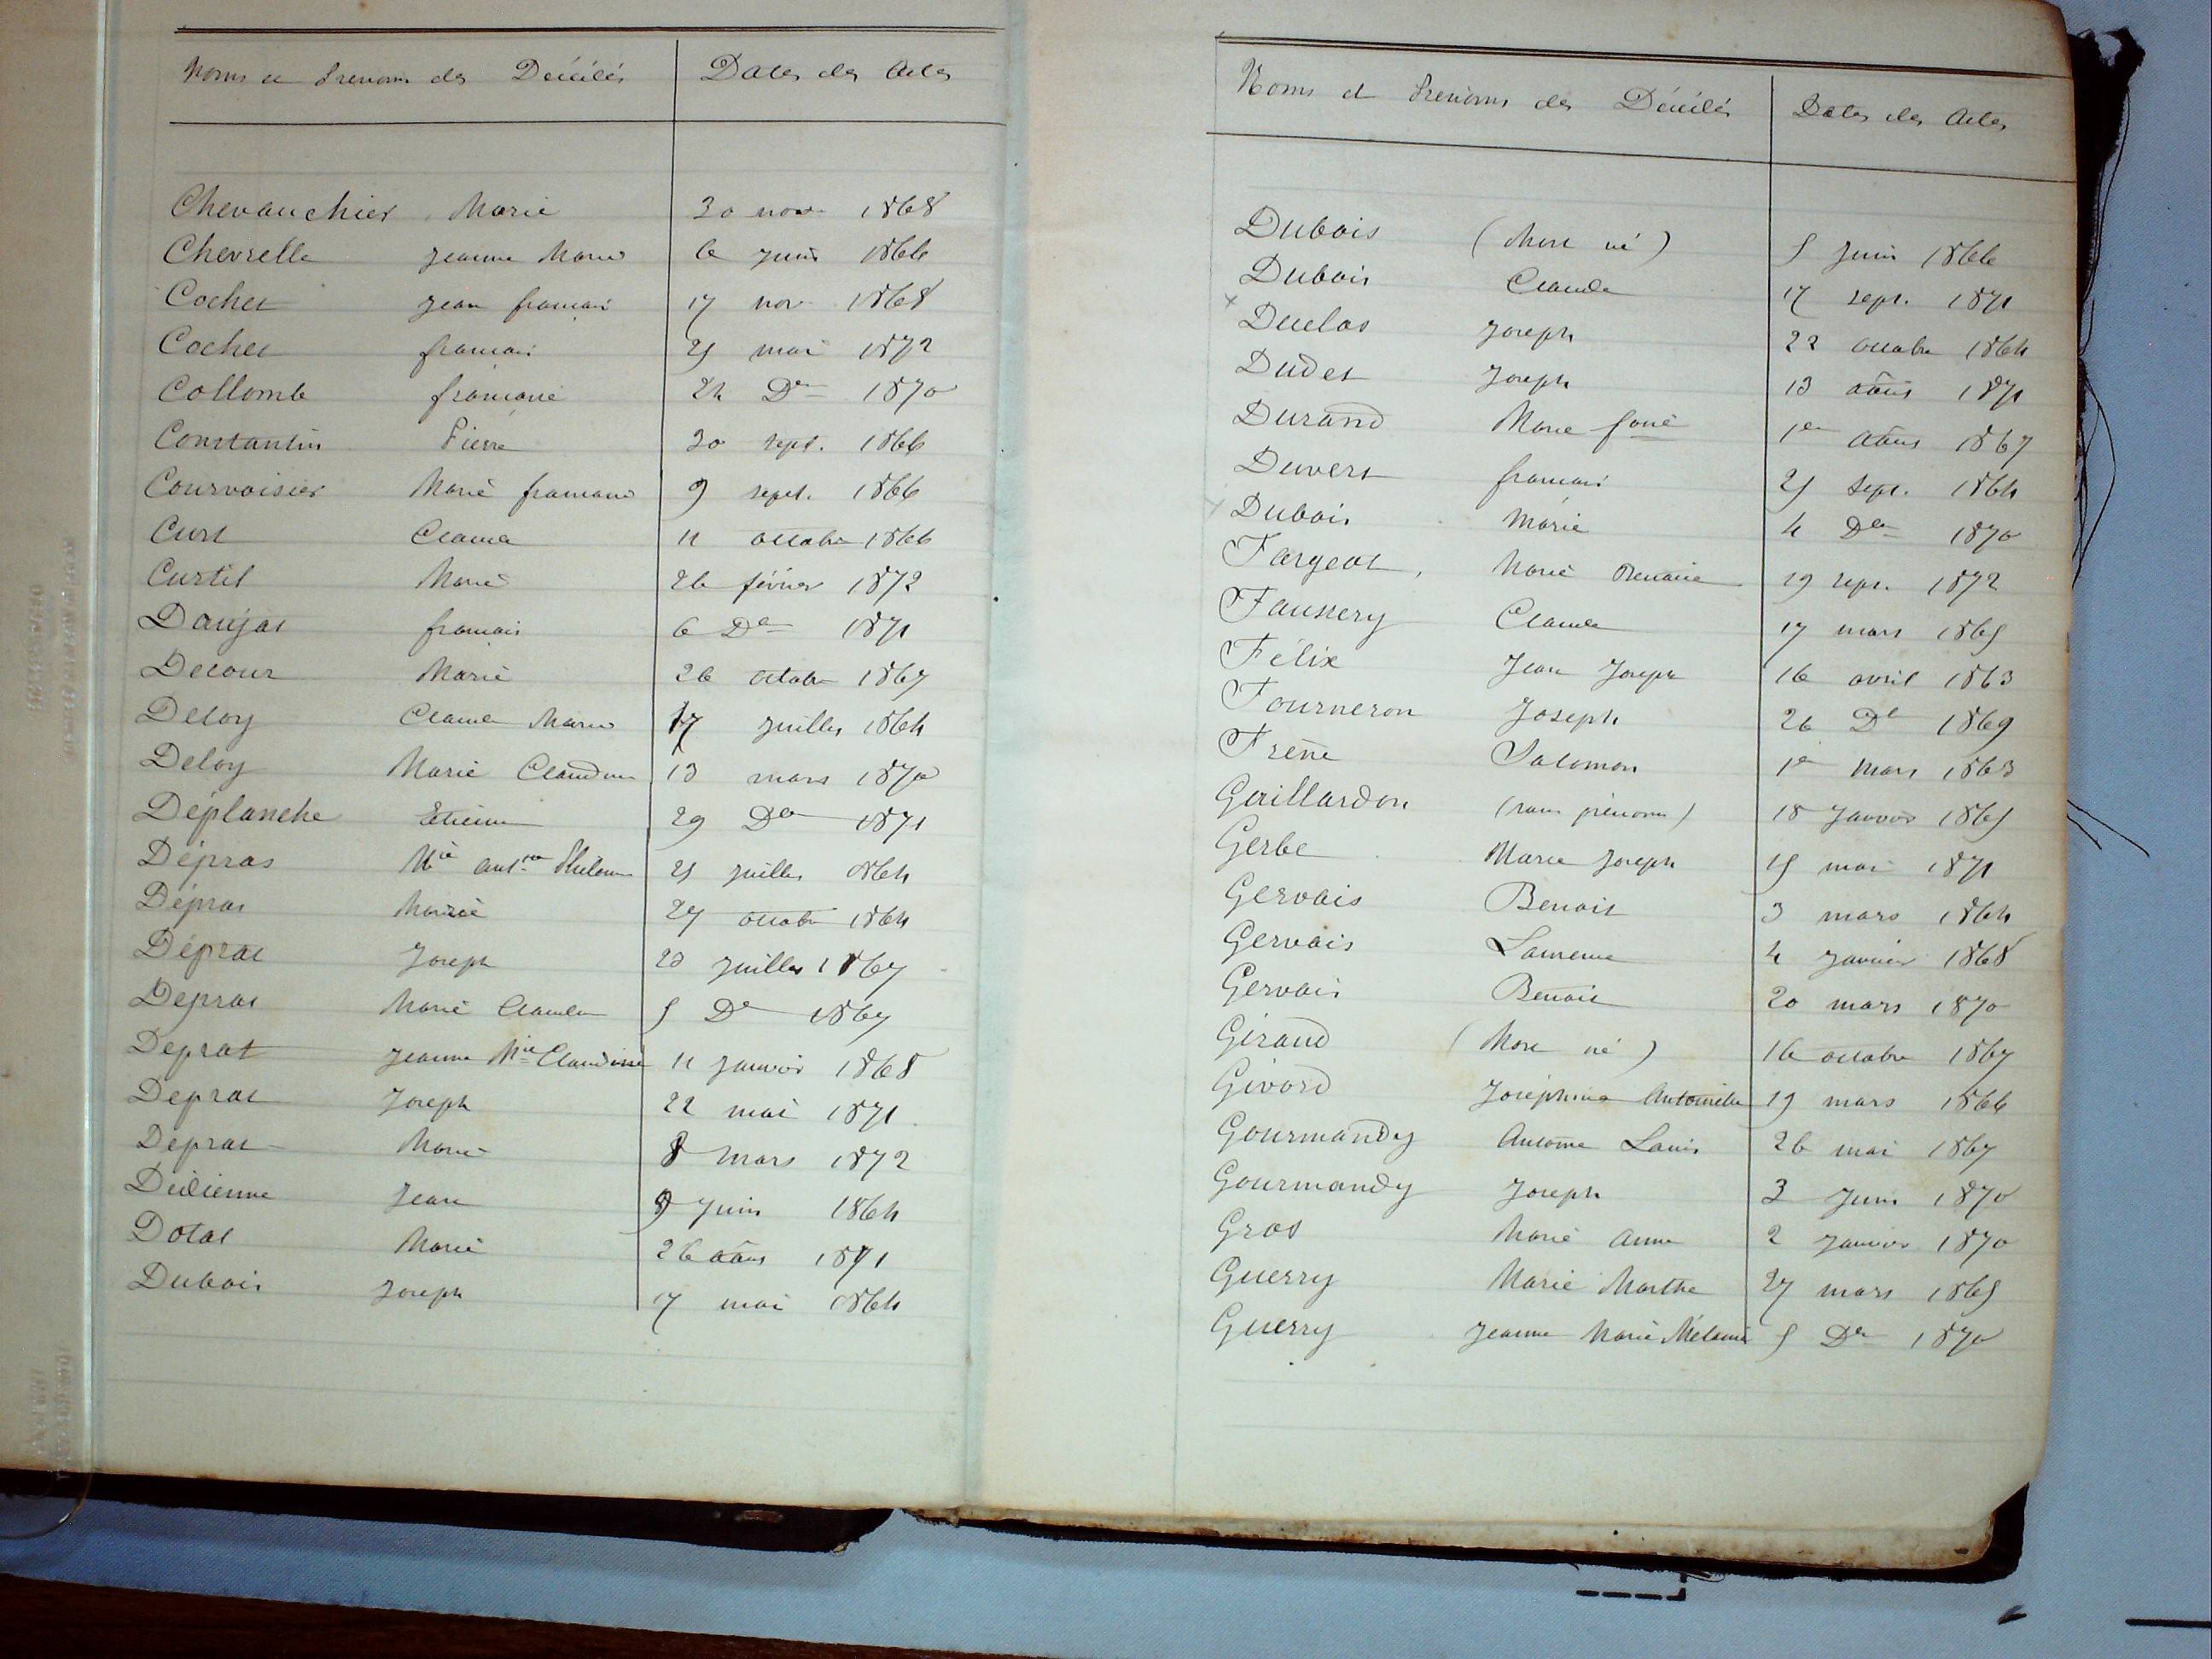 Noms et Prénoms des Décédés Dates des Actes
Chevauchier Marie 30 nov. 1868
Chevrelle Jeanne Marie 6 juin 1866
Cochet Jean françois 17 nov. 1868
Cochet françois 25 mai 1872
Collomb françoise 24 Dre 1870
Constantin Pierre 30 sept. 1866
Courvoisier Marie françoise 9 sept. 1866
Curt Claude 11 octobre 1866
Curtil Marie 26 février 1872
Daujat françois 6 Dre 1871
Decour Marie 26 octobre 1867
Deloy Claude Marie 17 juillet 1864
Deloy Marie Claudine 13 mars 1870
Déplanche Etienne 29 Dre 1871
Dépras Mie antte Philom 25 juillet 1864
Dépras Marie 27 octobre 1864
Déprat Joseph 23 juillet 1867
Deprat Marie Claudine 5 Dre 1867
Deprat Jeanne Mie Claudine 11 janvier 1868
Deprat Joseph 22 mai 1871
Deprat Marie 8 mars 1872
Didienne Jean 9 juin 1864
Dotat Marie 26 août 1871
Dubois Joseph 17 mai 1864
Noms et Prénoms des Décédés Dates des Actes
Dubois (Mort né) 5 Juin 1866
Dubois Claude 17 sept. 1871
Duclos Joseph 22 octobre 1864
Dudet Joseph 13 août 1871
Durand Marie fçoise 1er août 1867
Duvert françois 25 sept. 1864
Dubois Marie 4 Dre 1870
Fargeot Marie 19 sept. 1872
Faussery Claude 17 mars 1865
Félix Jean Joseph 16 avril 1863
Fourneron Joseph 26 Dre 1869
Frène Salomon 1er Mars 1863
Gaillardon (sans prénoms) 18 Janvier 1865
Gerbe Marie Joseph 15 mai 1871
Gervais Benoit 3 mars 1864
Gervais Laurence 4 janvier 1868
Gervais Benoit 20 mars 1870
Giraud (Mort né) 16 octobre 1867
Givord Joséphine Antoinette 19 mars 1866
Gourmandy Antoine Louis 26 mai 1867
Gourmandy Joseph 3 Juin 1870
Gros Marie Anne 2 janvier 1870
Guerry Marie Marthe 27 mars 1865
Guerry Jeanne Marie Mélanie 5 Dre 1870